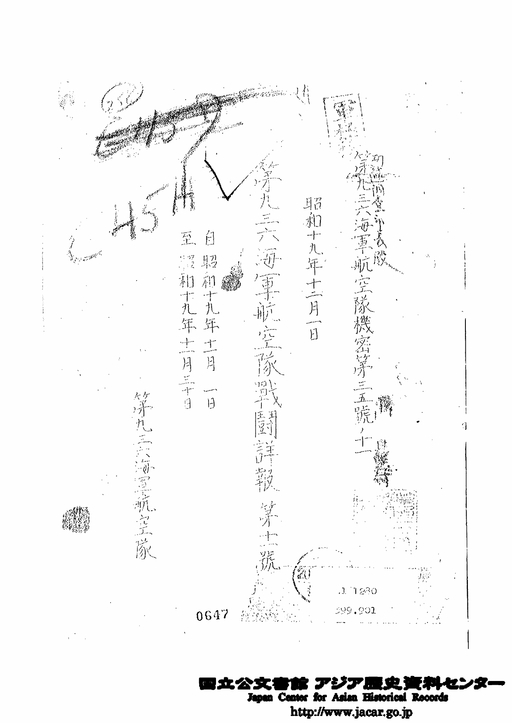 第九三六海軍航空隊機密第三五號ノ十一
昭和十九年十二月一日
第九三六海軍航空隊戰鬪詳報 第十一號
自 昭和十九年十一月 一日
至 昭和十九年十一月三十日
第九三六海軍航空隊
C H5H
0647
国立公文書館 アジア歴史資料センター
Japan Center for Asian Historical Records
http://www.jacar.go.jp